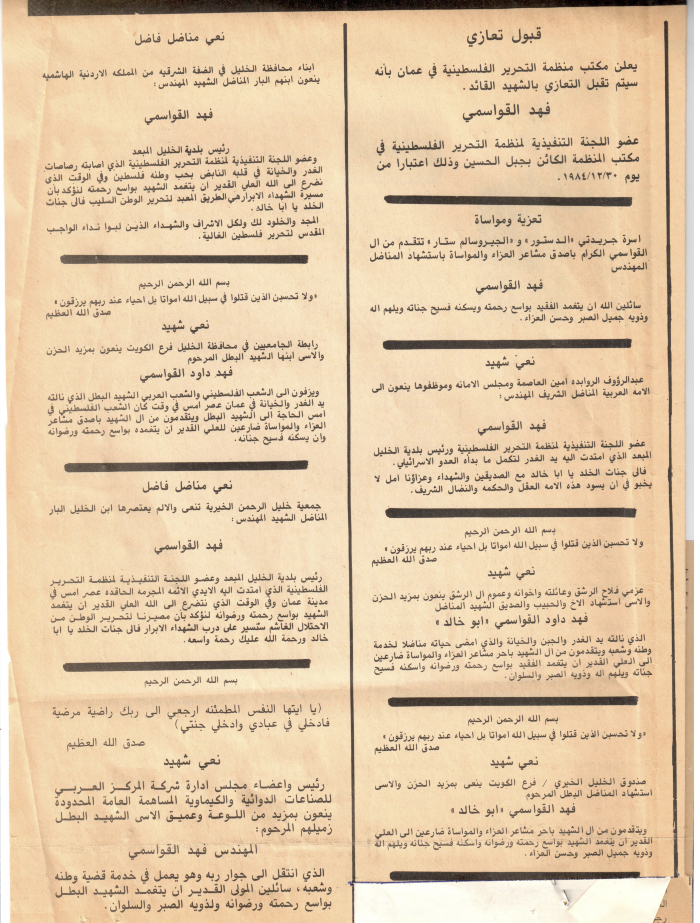 قبول تعازي
يعلن مكتب منظمة التحرير الفلسطينية في عمان بأنه
سيتم تقبل التعازي بالشهيد القائد.
فهد القواسمي
عضو اللجنة التنفيذية لمنظمة التحرير الفلسطينية في
مكتب المنظمة الكائن بجبل الحسين وذلك اعتبارا من
يوم ١٩٨٤/١٢/٣٠.
تعزية ومواساة
اسرة جريدتي «الدستور» و «الجيروسالم ستار» تتقدم من ال
القواسمي الكرام بأصدق مشاعر العزاء والمواساة باستشهاد المناضل
المهندس
فهد القواسمي
سائلين الله ان يتغمد الفقيد بواسع رحمته ويسكنه فسيح جناته ويلهم اله
وذويه جميل الصبر وحسن العزاء.
نعي شهيد
عبدالرؤوف الروابده امين العاصمة ومجلس الامانه وموظفوها ينعون الى
الامه العربية المناضل الشريف المهندس:
فهد القواسمي
عضو اللجنة التنفيذية لمنظمة التحرير الفلسطينية ورئيس بلدية الخليل
المبعد الذي امتدت اليه يد الغدر لتكمل ما بدأه العدو الاسرائيلي.
فالى جنات الخلد يا ابا خالد مع الصديقين والشهداء وعزاؤنا امل لا
يخبو في ان يسود هذه الامه العقل والحكمه والنضال الشريف.
بسم الله الرحمن الرحيم
ولا تحسبن الذين قتلوا في سبيل الله امواتا بل احياء عند ربهم يرزقون»
صدق الله العظيم
نعي شهيد
عزمي فلاح الرشق وعائلته واخوانه وعموم ال الرشق ينعون بمزيد الحزن
والاسى استشهاد الاخ والحبيب والصديق الشهيد المناضل
فهد داود القواسمي «ابو خالد»
الذي نالته يد الغدر والجبن والخيانة والذي امضى حياته مناضلا لخدمة
وطنه وشعبه ويتقدمون من ال الشهيد باحر مشاعر العزاء والمواساة ضارعين
الى العلي القدير ان يتغمد الفقيد بواسع رحمته ورضوانه واسكنه فسيح
جناته ويلهم اله وذويه الصبر والسلوان.
بسم الله الرحمن الرحيم
«ولا تحسبن الذين قتلوا في سبيل الله امواتا بل احياء عند ربهم يرزقون»
صدق الله العظيم
نعي شهيد
صندوق الخليل الخيري / فرع الكويت ينعى بمزيد الحزن والاسى
استشهاد المناضل البطل المرحوم
فهد القواسمي «ابو خالد»
ويتقدمون من ال الشهيد باحر مشاعر العزاء والمواساة ضارعين الى العلي
القدير ان يتغمد الفقيد بواسع رحمته ورضوانه واسكنه فسيح جناته ويلهم اله
وذويه جميل الصبر وحسن العزاء.
نعي مناضل فاضل
ابناء محافظة الخليل في الضفة الشرقيه من المملكه الاردنية الهاشميه
ينعون ابنهم البار المناضل الشهيد المهندس:
فهد القواسمي
رئيس بلدية الخليل المبعد
وعضو اللجنة التنفيذية لمنظمة التحرير الفلسطينية الذي اصابته رصاصات
الغدر والخيانة في قلبه النابض بحب وطنه فلسطين وفي الوقت الذي
نضرع الى الله العلي القدير ان يتغمد الشهيد بواسع رحمته لنؤكد بأن
مسيرة الشهداء الابرار هي الطريق المعبد لتحرير الوطن السليب فالى جنات
الخلد يا ابا خالد.
المجد والخلود لك ولكل الاشراف والشهداء الذين لبوا نداء الواجب
المقدس لتحرير فلسطين الغالية.
بسم الله الرحمن الرحيم
«ولا تحسبن الذين قتلوا في سبيل الله امواتا بل احياء عند ربهم يرزقون»
صدق الله العظيم
نعي شهيد
رابطة الجامعيين في محافظة الخليل فرع الكويت ينعون بمزيد الحزن
والاسى ابنها الشهيد البطل المرحوم
فهد داود القواسمي
ويزفون الى الشعب الفلسطيني والشعب العربي الشهيد البطل الذي نالته
يد الغدر والخيانة في عمان عصر امس في وقت كان الشعب الفلسطيني في
امس الحاجة الى الشهيد البطل ويتقدمون من ال الشهيد باصدق مشاعر
العزاء والمواساة ضارعين للعلي القدير ان يتغمده بواسع رحمته ورضوانه
وان يسكنه فسيح جنانه.
نعي مناضل فاضل
جمعية خليل الرحمن الخيرية تنعى والالم يعتصرها ابن الخليل البار
المناضل الشهيد المهندس:
فهد القواسمي
رئيس بلدية الخليل المبعد وعضو اللجنة التنفيذية لمنظمة التحرير
الفلسطينية الذي امتدت اليه الايدي الاثمه المجرمه الحاقده عصر امس في
مدينة عمان وفي الوقت الذي نتضرع الى الله العلي القدير ان يتغمد
الشهيد بواسع رحمته ورضوانه لنؤكد بأن مصيرنا لتحرير الوطن من
الاحتلال الغاشم ستسير على درب الشهداء الابرار فالى جنات الخلد يا ابا
خالد ورحمة الله عليك رحمة واسعه.
بسم الله الرحمن الرحيم
(يا ايتها النفس المطمئنه ارجعي الى ربك راضية مرضية
فادخلي في عبادي وادخلي جنتي)
صدق الله العظيم
نعي شهيد
رئيس واعضاء مجلس ادارة شركة المركز العربي
للصناعات الدوائية والكيماوية المساهمة العامة المحدودة
ينعون بمزيد من اللوعة وعميق الاسى الشهيد البطل
زميلهم المرحوم:
المهندس فهد القواسمي
الذي انتقل الى جوار ربه وهو يعمل في خدمة قضية وطنه
وشعبه، سائلين المولى القدير ان يتغمد الشهيد البطل
بواسع رحمته ورضوانه ولذويه الصبر والسلوان.